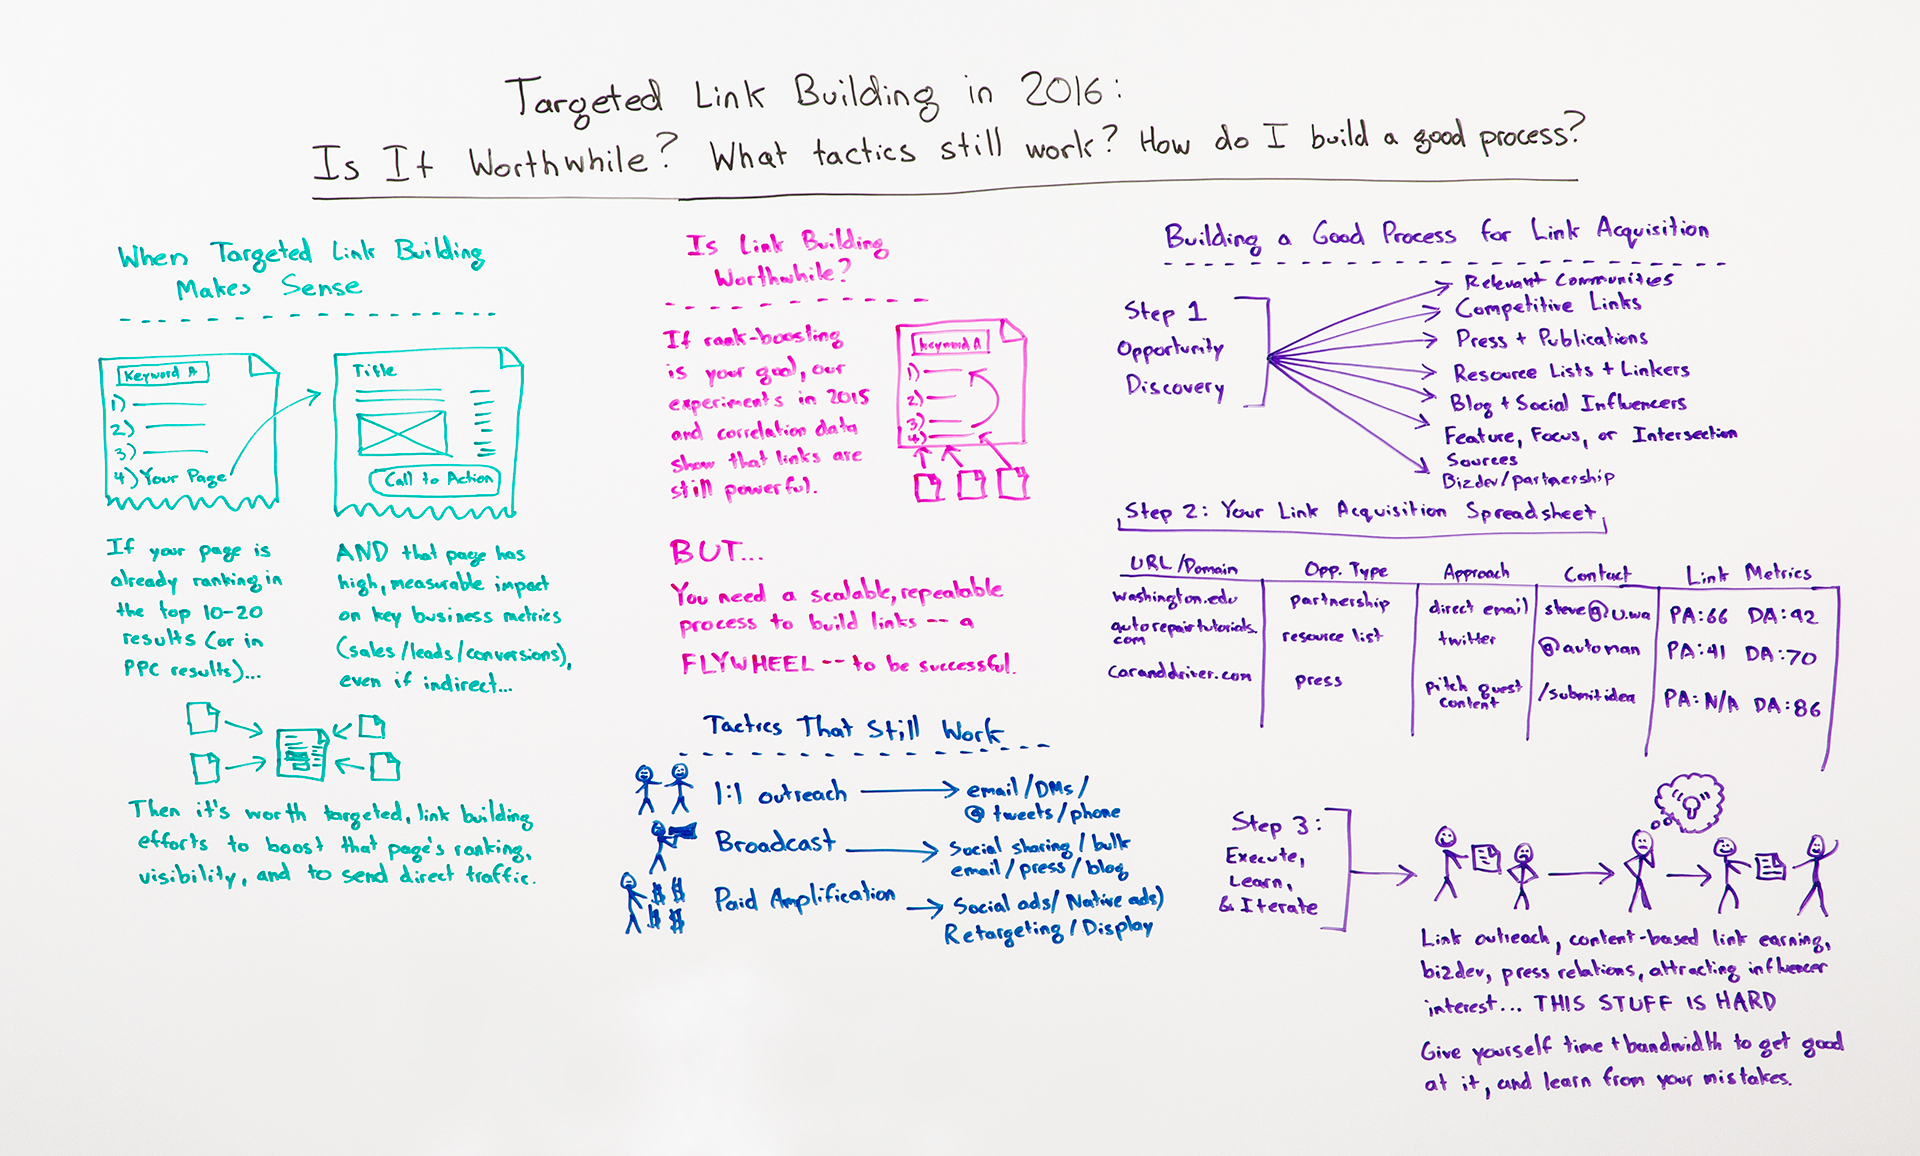 Targeted Link Building in 2016:
Is It Worthwhile? What tactics still work? How do I build a good process?
When Targeted Link Building
Makes Sense
Keyword A
1)
2)
3)
4) Your Page
Title
Call to Action
If your page is
already ranking in
the top 10-20
results (or in
PPC results)...
AND that page has
high, measurable impact
on key business metrics
(sales/leads/conversions),
even if indirect...
Then it's worth targeted, link building
efforts to boost that page's ranking,
visibility, and to send direct traffic.
Is Link Building
Worthwhile?
If rank-boosting
is your goal, our
experiments in 2015
and correlation data
show that links are
still powerful.
Keyword A
1)
2)
3)
4)
BUT...
You need a scalable, repealable
process to build links -- a
FLYWHEEL -- to be successful.
Tactics That Still Work
1:1 outreach
email/DMs/
@ tweets/phone
Broadcast
Social sharing/bulk
email/press/blog
Paid Amplification
Social ads/Native ads)
Retargeting/Display
Building a Good Process for Link Acquisition
Step 1
Opportunity
Discovery
Relevant Communities
Competitive Links
Press + Publications
Resource Lists + Linkers
Blog + Social Influencers
Feature, Focus, or Intersection
Sources
Bizdev/partnership
Step 2: Your Link Acquisition Spreadsheet
URL/Domain Opp. Type Approach Contact Link Metrics
washington.edu partnership direct email steve@u.wa PA:66 DA:42
autorepairtutorials.
com resource list twitter @automan PA:41 DA:70
caranddriver.com press pitch guest
content /submitidea PA:N/A DA:86
Step 3:
Execute,
Learn,
& Iterate
Link outreach, content-based link earning,
bizdev, press relations, attracting influencer
interest... THIS STUFF IS HARD
Give yourself time + bandwidth to get good
at it, and learn from your mistakes.